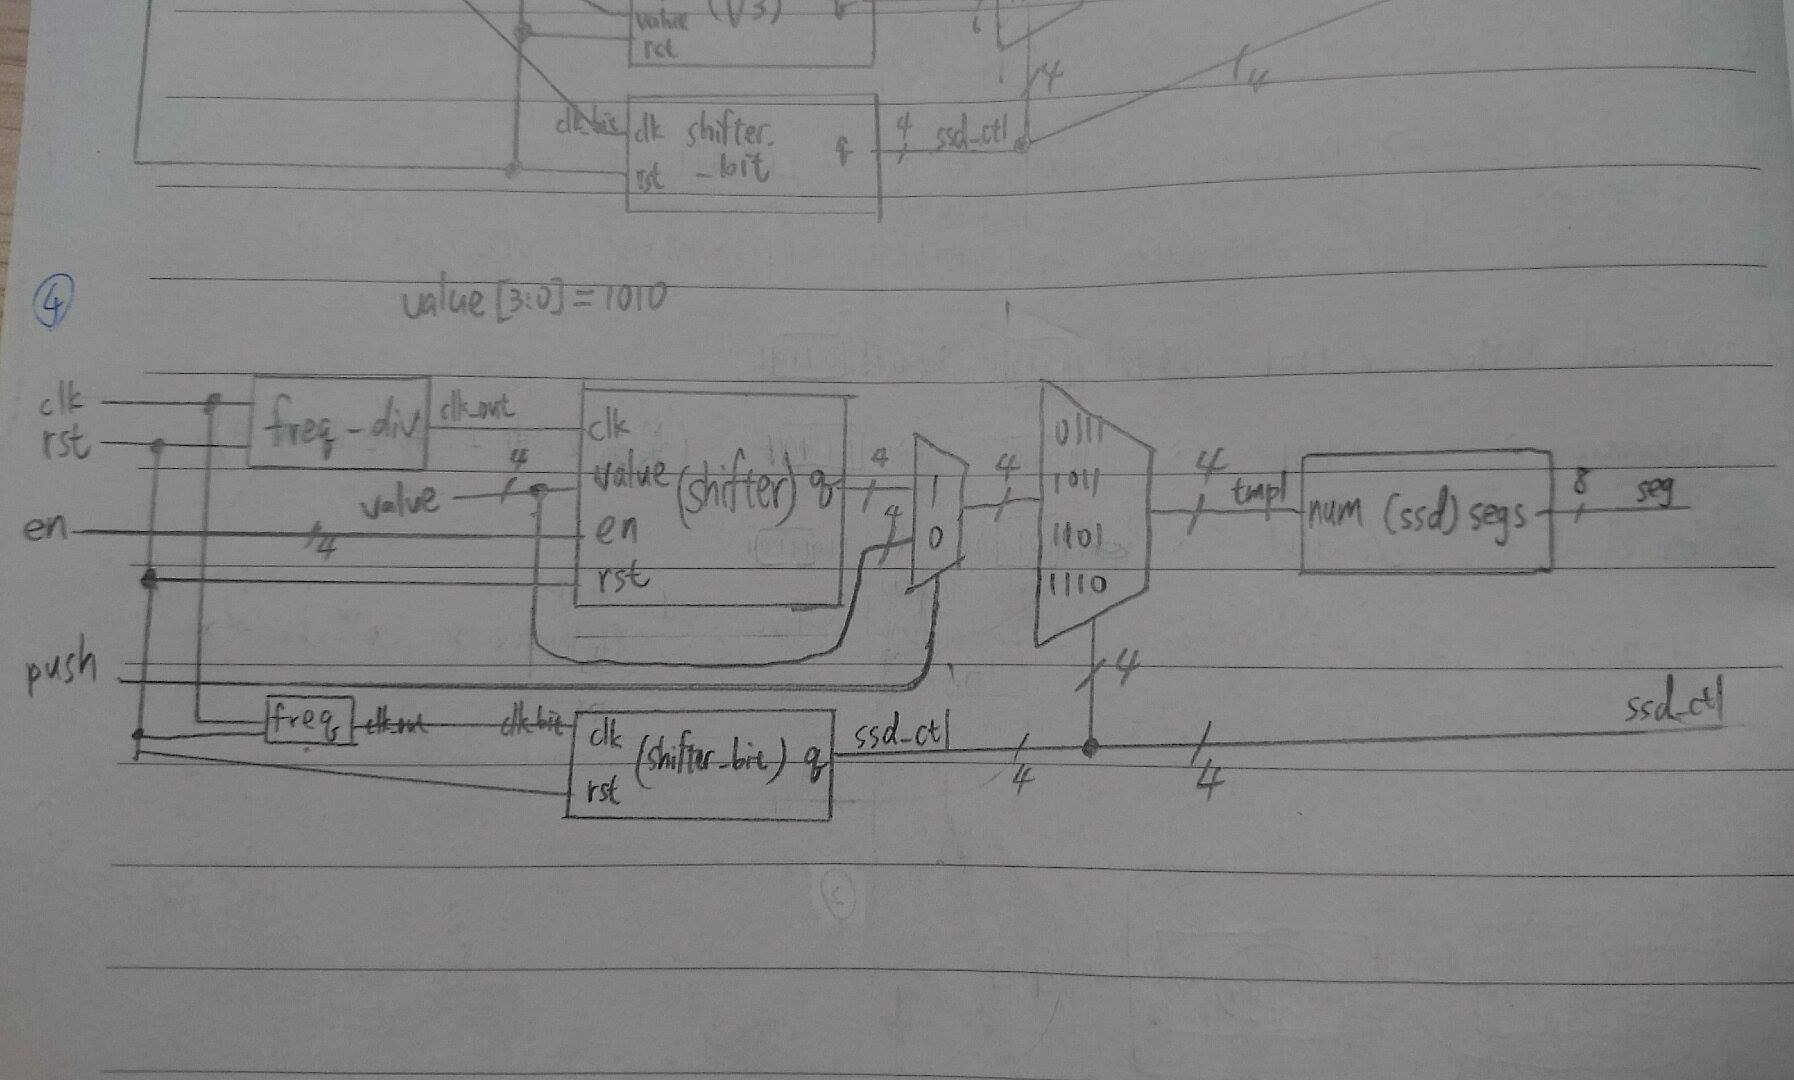 value (√3)
rst
6
4
4
clk_bit clk shifter_ q 4 ssd_ctl
rst -bit
④
value [3:0] = 1010
clk freq-div clk_out clk
rst
value 4 value (shifter) q 4 1 4 4 tmpl num (ssd) segs 8 seg
0111
1011
1101
1110
en 4 en 4 0
rst
push 4
freq clk_out clk_bit clk (shifter_bit) q ssd_ctl 4 4 ssd_ctl
rst